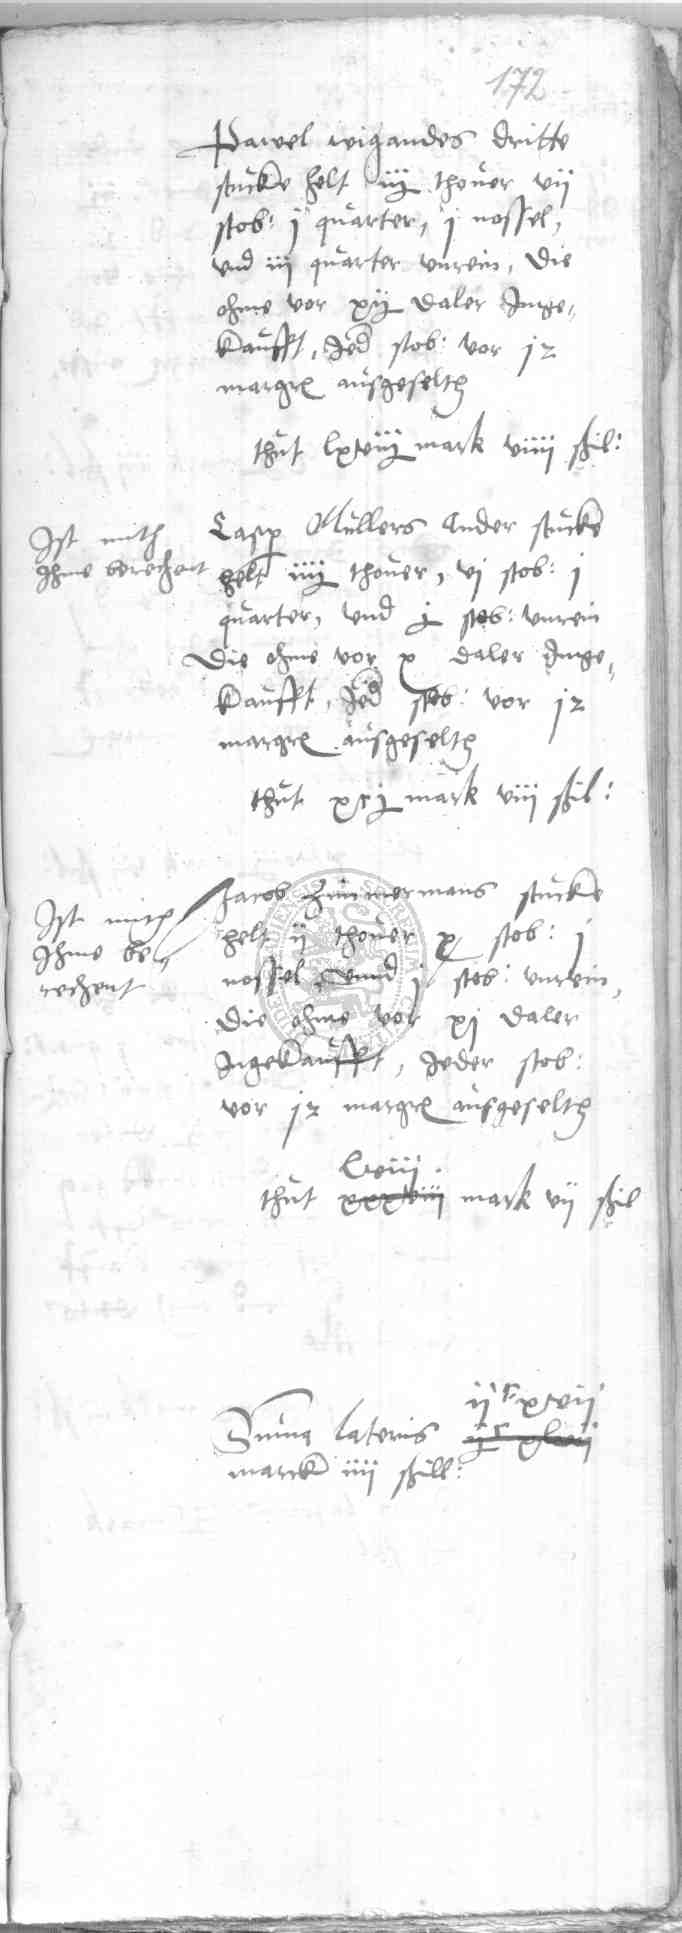 172
Pawel wigandes dritte
stucke helt iij thover vij
stob: j quarter, j nossel,
vnd iij quarter vnrein, die
ohme vor xij daler Inge,
kaufft, Jed stob: vor j2
margr ausgeseltz
thut lxviij mark viiii ßil:
Ist mith
Ihme berechent
Casp Mullers ander stucke
helt iiij thover, vj stob: j
quarter, vnd j stob: vnrein
die ohme vor x daler Inge,
kaufft, Jed stob: vor j2
margr ausgeseltz
thut mark viij ßil:
Ist mith
Ihme be,
rechent
Jacob Zimmermans stucke
helt ij thover x stob: j
nossel, vnnd j stob: vnrein,
die ohme vor xj daler
Ingekaufft, Jeder stob:
vor j2 margr ausgeseltz
Lviij.
thut xxxviij mark vij ßil
ij c xvij
Suma lateris
marck iiij ßill: